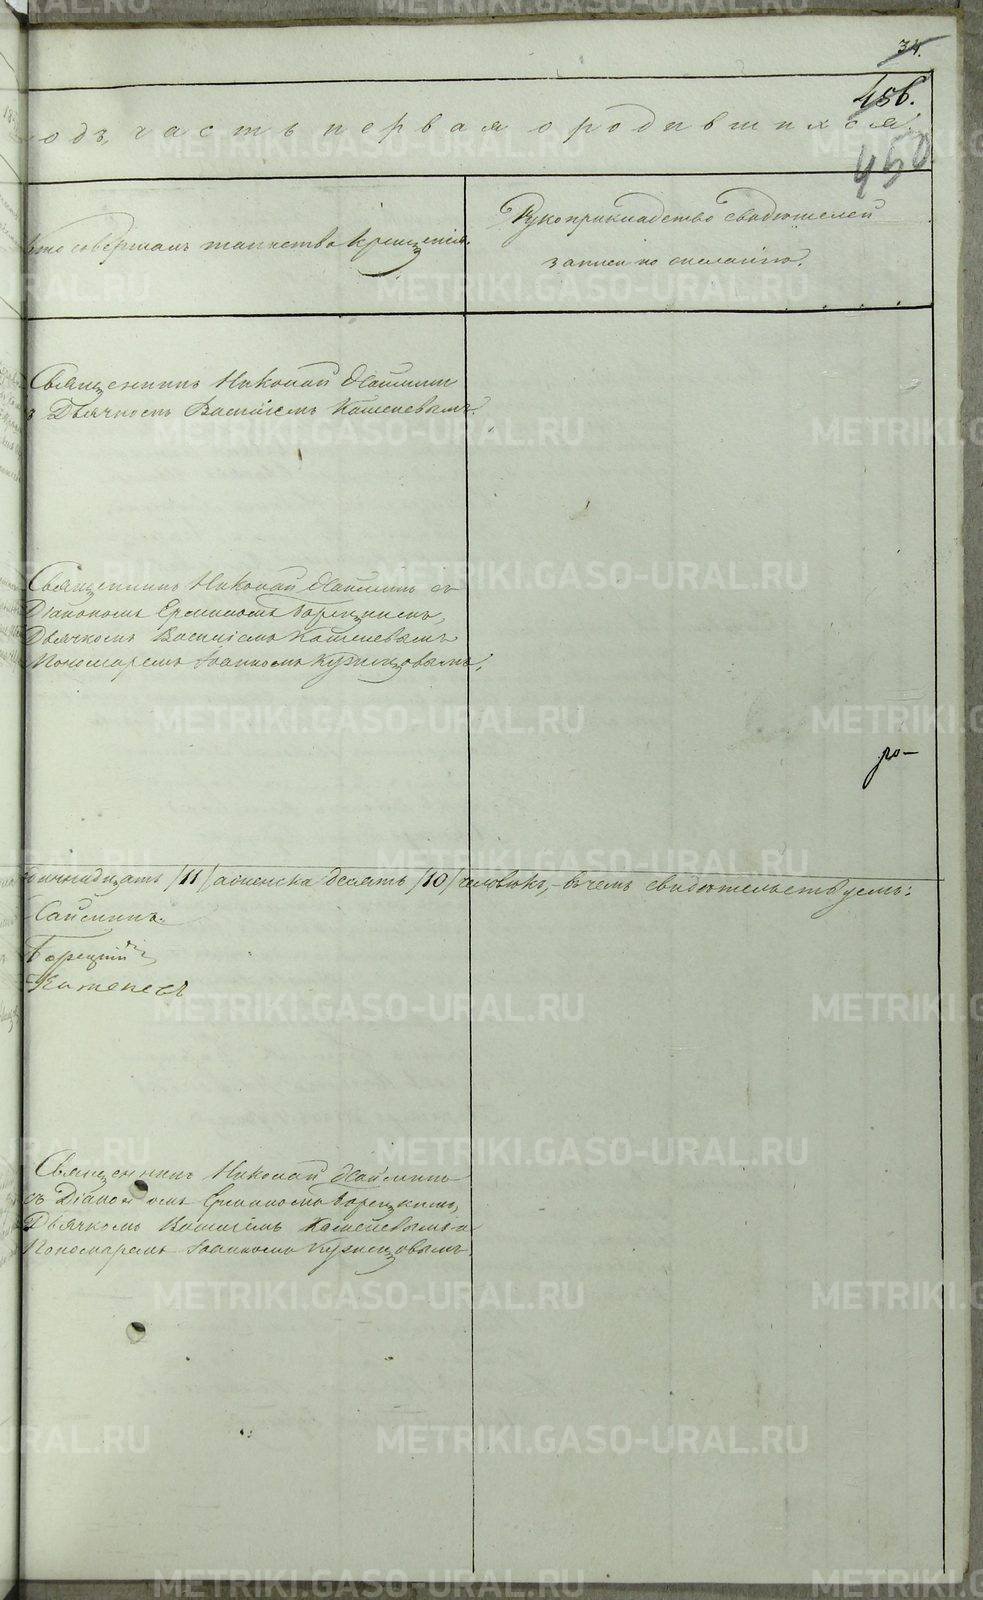 34.
456.
450
одъ, часть первая о родившихся.
Кто совершалъ таинство крещенія.
Рукоприкладство свидѣтелей
записи по желанію.
Священникъ Николай
Дьячкомъ Василіемъ Кашеневымъ.
Священникъ Николай съ
Діакономъ Ермиломъ Борецкимъ,
Дьячкомъ Василіемъ Кашеневымъ
Пономаремъ Іоанномъ Кузнецовымъ.
ро-
одиннадцать /11/ а женска десять /10/ человѣкъ, - въ чемъ свидѣтельствуемъ:
Борецкій
Кашеневъ
Священникъ Николай
съ Діакономъ Ермиломъ Борецкимъ,
Дьячкомъ Василіемъ Кашеневымъ и
Пономаремъ Іоанномъ Кузнецовымъ.
METRIKI.GASO-URAL.RU